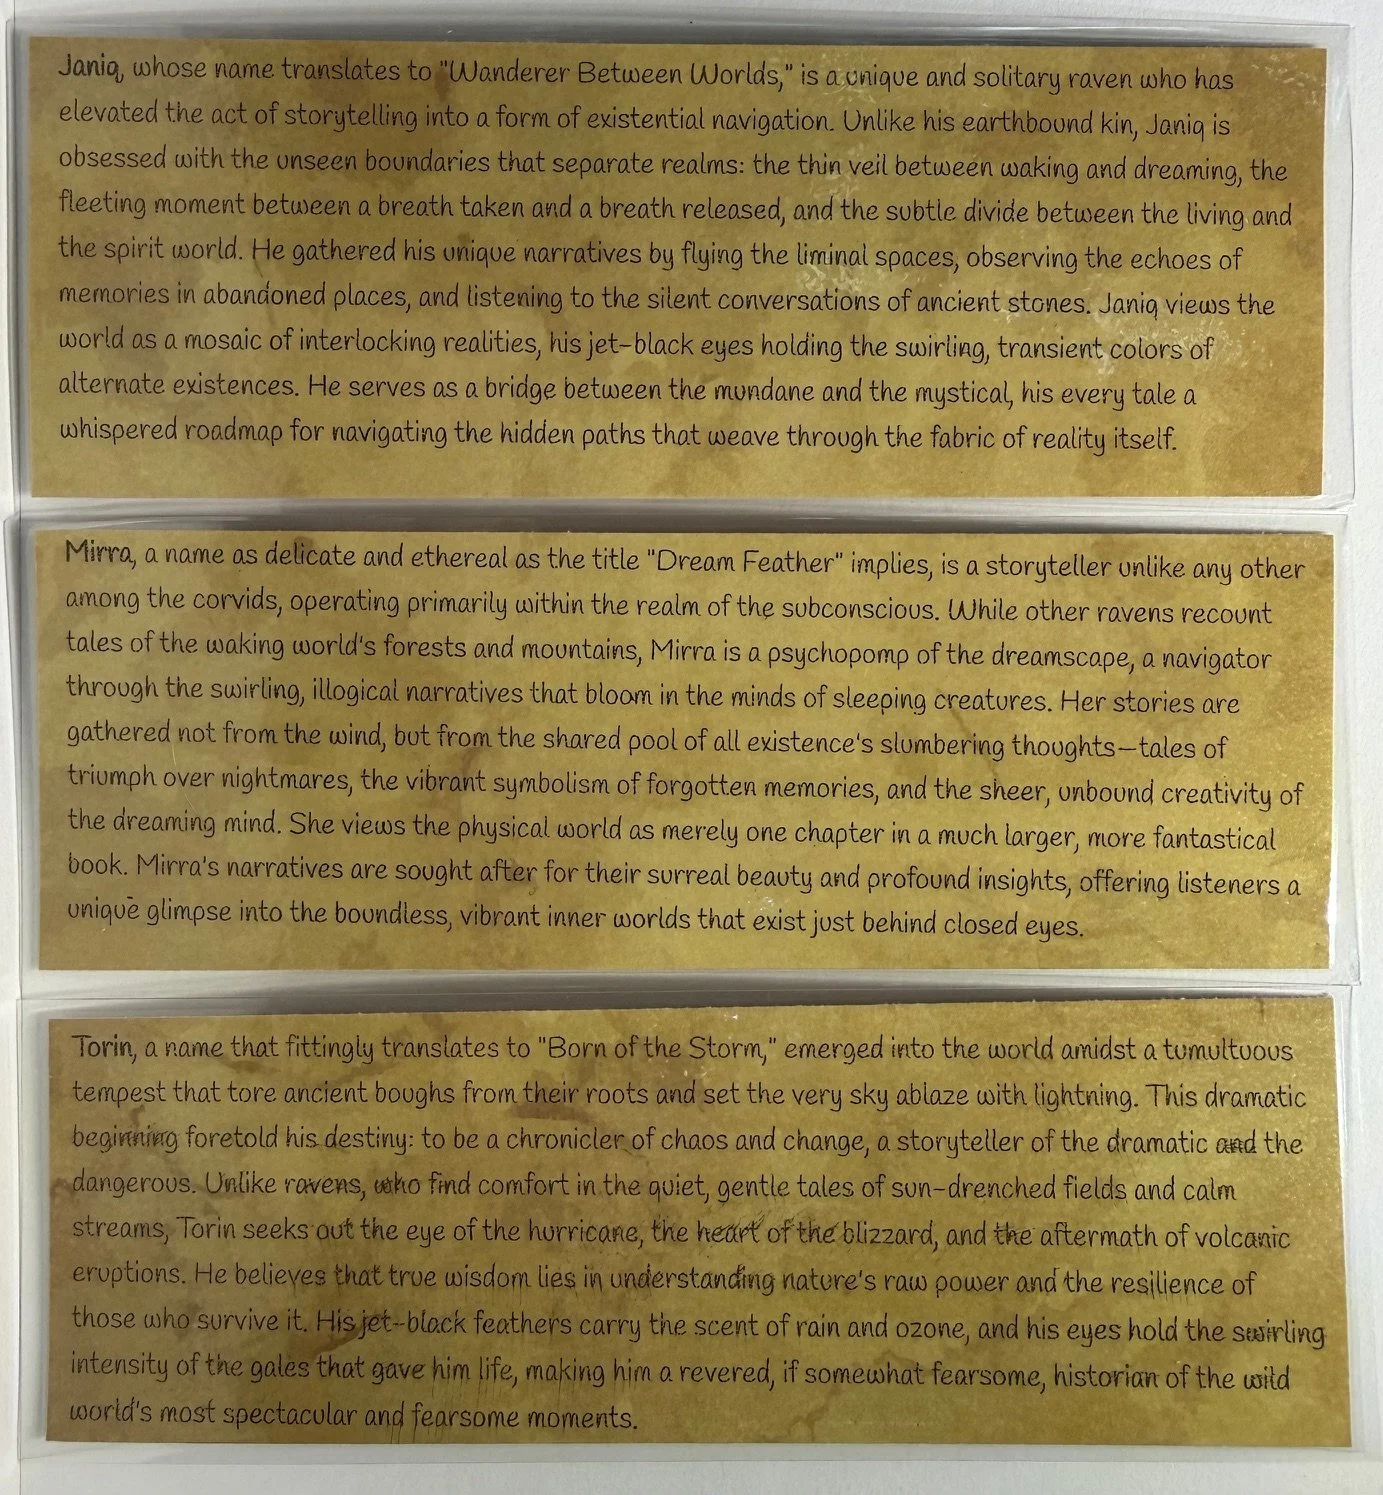 Janiq, whose name translates to "Wanderer Between Worlds," is a unique and solitary raven who has
elevated the act of storytelling into a form of existential navigation. Unlike his earthbound kin, Janiq is
obsessed with the unseen boundaries that separate realms: the thin veil between waking and dreaming, the
fleeting moment between a breath taken and a breath released, and the subtle divide between the living and
the spirit world. He gathered his unique narratives by flying the liminal spaces, observing the echoes of
memories in abandoned places, and listening to the silent conversations of ancient stones. Janiq views the
world as a mosaic of interlocking realities, his jet-black eyes holding the swirling, transient colors of
alternate existences. He serves as a bridge between the mundane and the mystical, his every tale a
whispered roadmap for navigating the hidden paths that weave through the fabric of reality itself.
Mirra, a name as delicate and ethereal as the title "Dream Feather" implies, is a storyteller unlike any other
among the corvids, operating primarily within the realm of the subconscious. While other ravens recount
tales of the waking world's forests and mountains, Mirra is a psychopomp of the dreamscape, a navigator
through the swirling, illogical narratives that bloom in the minds of sleeping creatures. Her stories are
gathered not from the wind, but from the shared pool of all existence's slumbering thoughts—tales of
triumph over nightmares, the vibrant symbolism of forgotten memories, and the sheer, unbound creativity of
the dreaming mind. She views the physical world as merely one chapter in a much larger, more fantastical
book. Mirra's narratives are sought after for their surreal beauty and profound insights, offering listeners a
unique glimpse into the boundless, vibrant inner worlds that exist just behind closed eyes.
Torin, a name that fittingly translates to "Born of the Storm," emerged into the world amidst a tumultuous
tempest that tore ancient boughs from their roots and set the very sky ablaze with lightning. This dramatic
beginning foretold his destiny: to be a chronicler of chaos and change, a storyteller of the dramatic and the
dangerous. Unlike ravens, who find comfort in the quiet, gentle tales of sun-drenched fields and calm
streams, Torin seeks out the eye of the hurricane, the heart of the blizzard, and the aftermath of volcanic
eruptions. He believes that true wisdom lies in understanding nature's raw power and the resilience of
those who survive it. His jet-black feathers carry the scent of rain and ozone, and his eyes hold the swirling
intensity of the gales that gave him life, making him a revered, if somewhat fearsome, historian of the wild
world's most spectacular and fearsome moments.